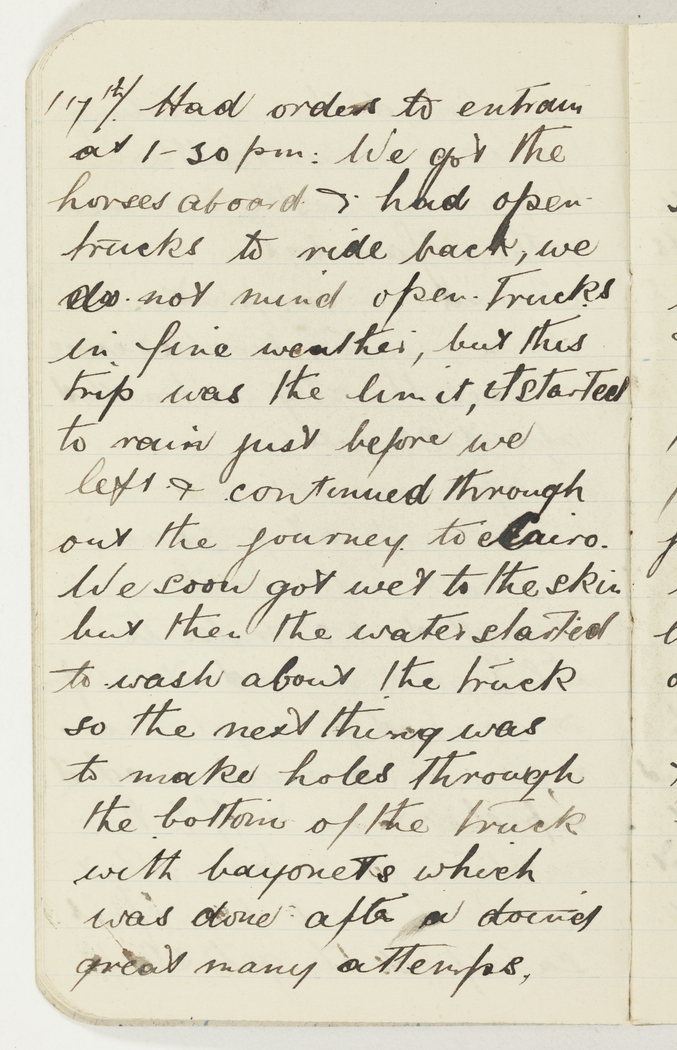 17th/ Had orders to entrain
at 1-30 pm: We got the
horses aboard & had open
trucks to ride back, we
do not mind open trucks
in fine weather, but this
trip was the limit, it started
to rain just before we
left & continued through
out the journey to Cairo.
We soon got wet to the skin
but then the water started
to wash about the truck
so the next thing was
to make holes through
the bottom of the truck
with bayonets which
was done after a
great many attemps,